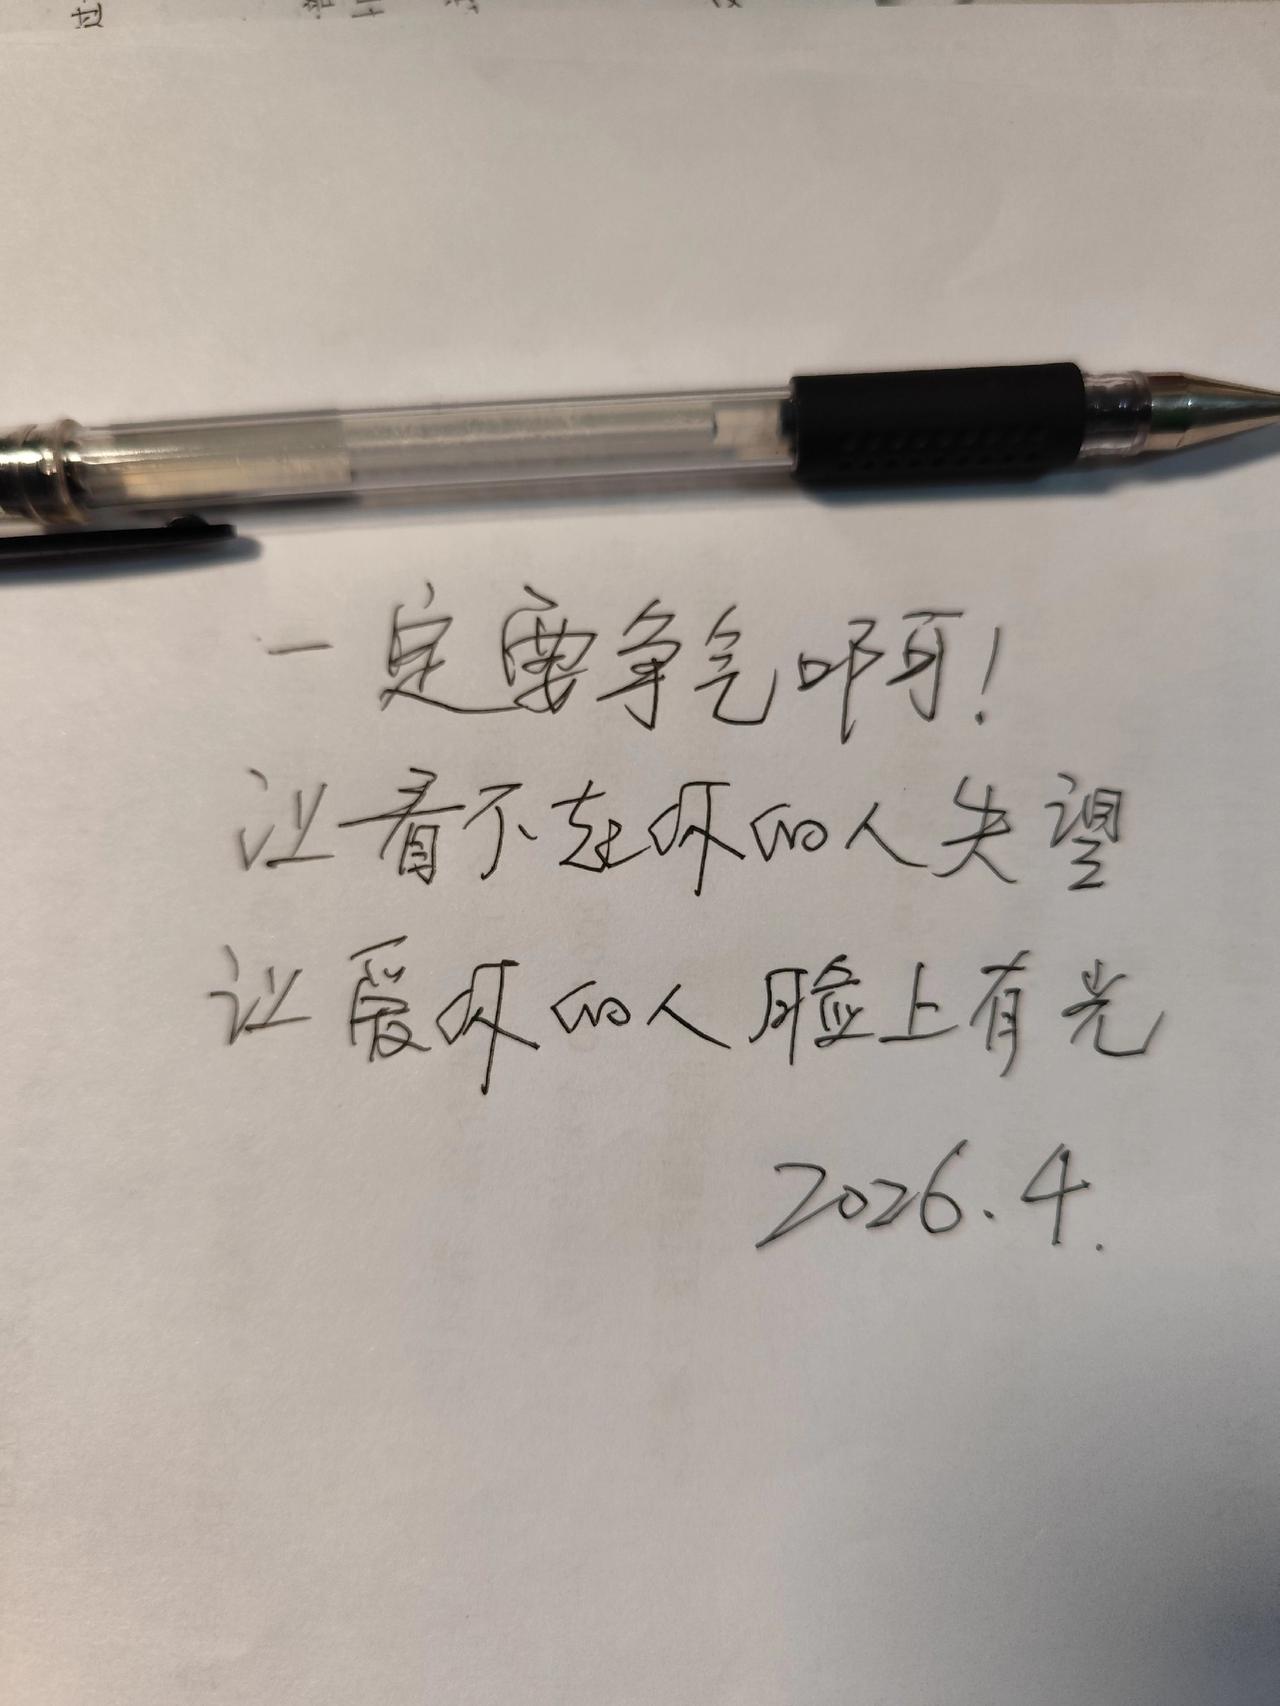 一定要争气啊!
让看不起你的人失望
让爱你的人脸上有光
2026.4.